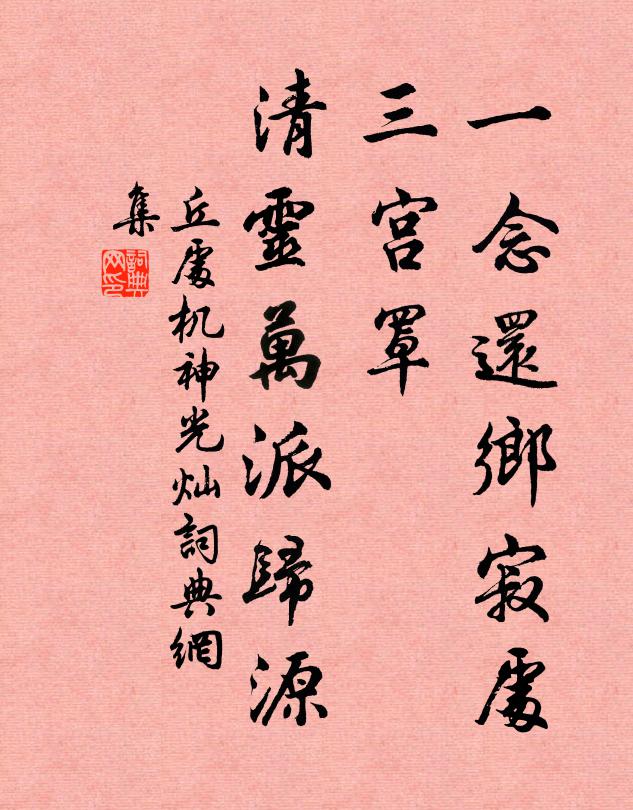 一念還鄉寂處
三宮罩
清靈萬派歸源
丘處机神光灿詞典網
集
詞典
网印